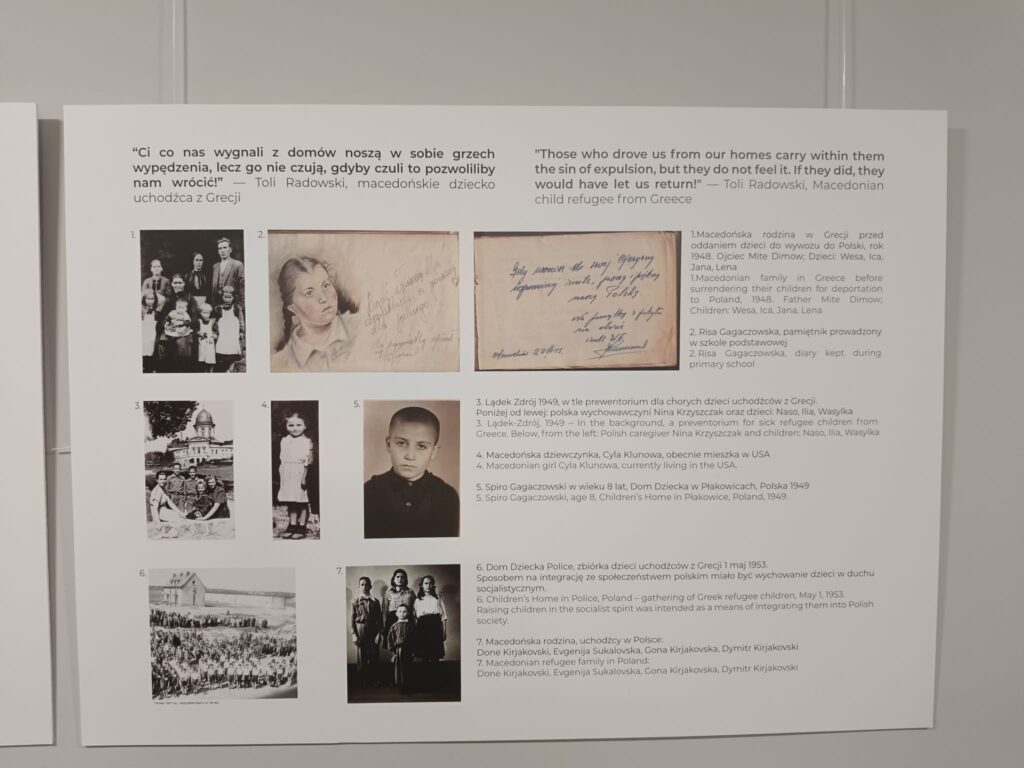 “Ci co nas wygnali z domów noszą w sobie grzech
wypędzenia, lecz go nie czują, gdyby czuli to pozwoliliby
nam wrócić!” — Toli Radowski, macedońskie dziecko
uchodźca z Grecji
"Those who drove us from our homes carry within them
the sin of expulsion, but they do not feel it. If they did, they
would have let us return!" — Toli Radowski, Macedonian
child refugee from Greece
1.
2.
1.Macedońska rodzina w Grecji przed
oddaniem dzieci do wywozu do Polski, rok
1948. Ojciec Mite Dimow; Dzieci: Wesa, Ica,
Jana, Lena
1.Macedonian family in Greece before
surrendering their children for deportation
to Poland, 1948. Father Mite Dimow;
Children: Wesa, Ica, Jana, Lena
2. Risa Gagaczowska, pamiętnik prowadzony
w szkole podstawowej
2. Risa Gagaczowska, diary kept during
primary school
3.
4.
5.
3. Lądek Zdrój 1949, w tle prewentorium dla chorych dzieci uchodźców z Grecji.
Poniżej od lewej: polska wychowawczyni Nina Krzyszczak oraz dzieci: Naso, Ilia, Wasylka
3. Lądek-Zdrój, 1949 – In the background, a preventorium for sick refugee children from
Greece. Below, from the left: Polish caregiver Nina Krzyszczak and children: Naso, Ilia, Wasylka
4. Macedońska dziewczynka, Cyla Klunowa, obecnie mieszka w USA
4. Macedonian girl Cyla Klunowa, currently living in the USA.
5. Spiro Gagaczowski w wieku 8 lat, Dom Dziecka w Płakowicach, Polska 1949
5. Spiro Gagaczowski, age 8, Children's Home in Płakowice, Poland, 1949.
6.
7.
6. Dom Dziecka Police, zbiórka dzieci uchodźców z Grecji 1 maj 1953.
Sposobem na integrację ze społeczeństwem polskim miało być wychowanie dzieci w duchu
socjalistycznym.
6. Children's Home in Police, Poland – gathering of Greek refugee children, May 1, 1953.
Raising children in the socialist spirit was intended as a means of integrating them into Polish
society.
7. Macedońska rodzina, uchodźcy w Polsce:
Done Kirjakovski, Evgenija Sukalovska, Gona Kirjakovska, Dymitr Kirjakovski
7. Macedonian refugee family in Poland:
Done Kirjakovski, Evgenija Sukalovska, Gona Kirjakovska, Dymitr Kirjakovski